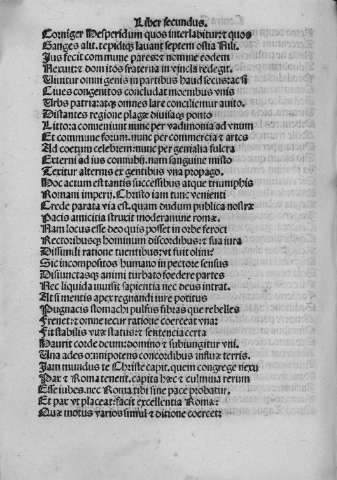 Liber secundus.
Corniger Hesperidum quos interlabitur: et quos
Ganges alit. tepidisq; lauant septem ostia Nili.
Jus fecit commune pares: et nomine eodem
Nexuit: et domitos fraterna in vincla redegit.
Viuitur omnigenis in partibus haud secus: ac si
Ciues congenitos concludat moenibus vnis
Urbs patria: atq; omnes lare concilietur auito.
Distantes regione plagæ diuisaq; ponto
Littora conueniunt nunc per vadimonia ad vnum
Et commune forum. nunc per commercia et artes
Ad coetum celebrem: nunc per genialia fulcra
Externi ad ius connubij. nam sanguine misto
Texitur alternis ex gentibus vna propago.
Hoc actum est tantis successibus atque triumphis
Romani imperij. Christo iam tunc venienti
Crede parata via est. quam dudum publica nostræ
Pacis amicitia struxit moderamine romæ.
Nam locus esse deo quis posset in orbe feroci
Rectoribusq; hominum discordibus: et sua iura
Dissimili ratione tuentibus: vt fuit olim?
Sic incompositos humano in pectore sensus
Disiunctasq; animi turbato foedere partes
Nec liquida inuisit sapientia nec deus intrat.
At si mentis apex regnandi iure potitus
Pugnacis stomachi pulsus fibrasq; rebelles
Frenet: et omne iecur ratione coerceat vna:
Fit stabilis vitæ status: et sententia certa
Haurit corde deum: domino et subiungitur vni.
Una ades omnipotens concordibus influe terris.
Iam mundus te Christe capit. quem congrege nexu
Pax et Roma tenent. capita hæc et culmina rerum
Esse iubes. nec Roma tibi sine pace probatur.
Et pax vt placeat: facit excellentia Romæ:
Quæ motus varios simul et ditione coercet: